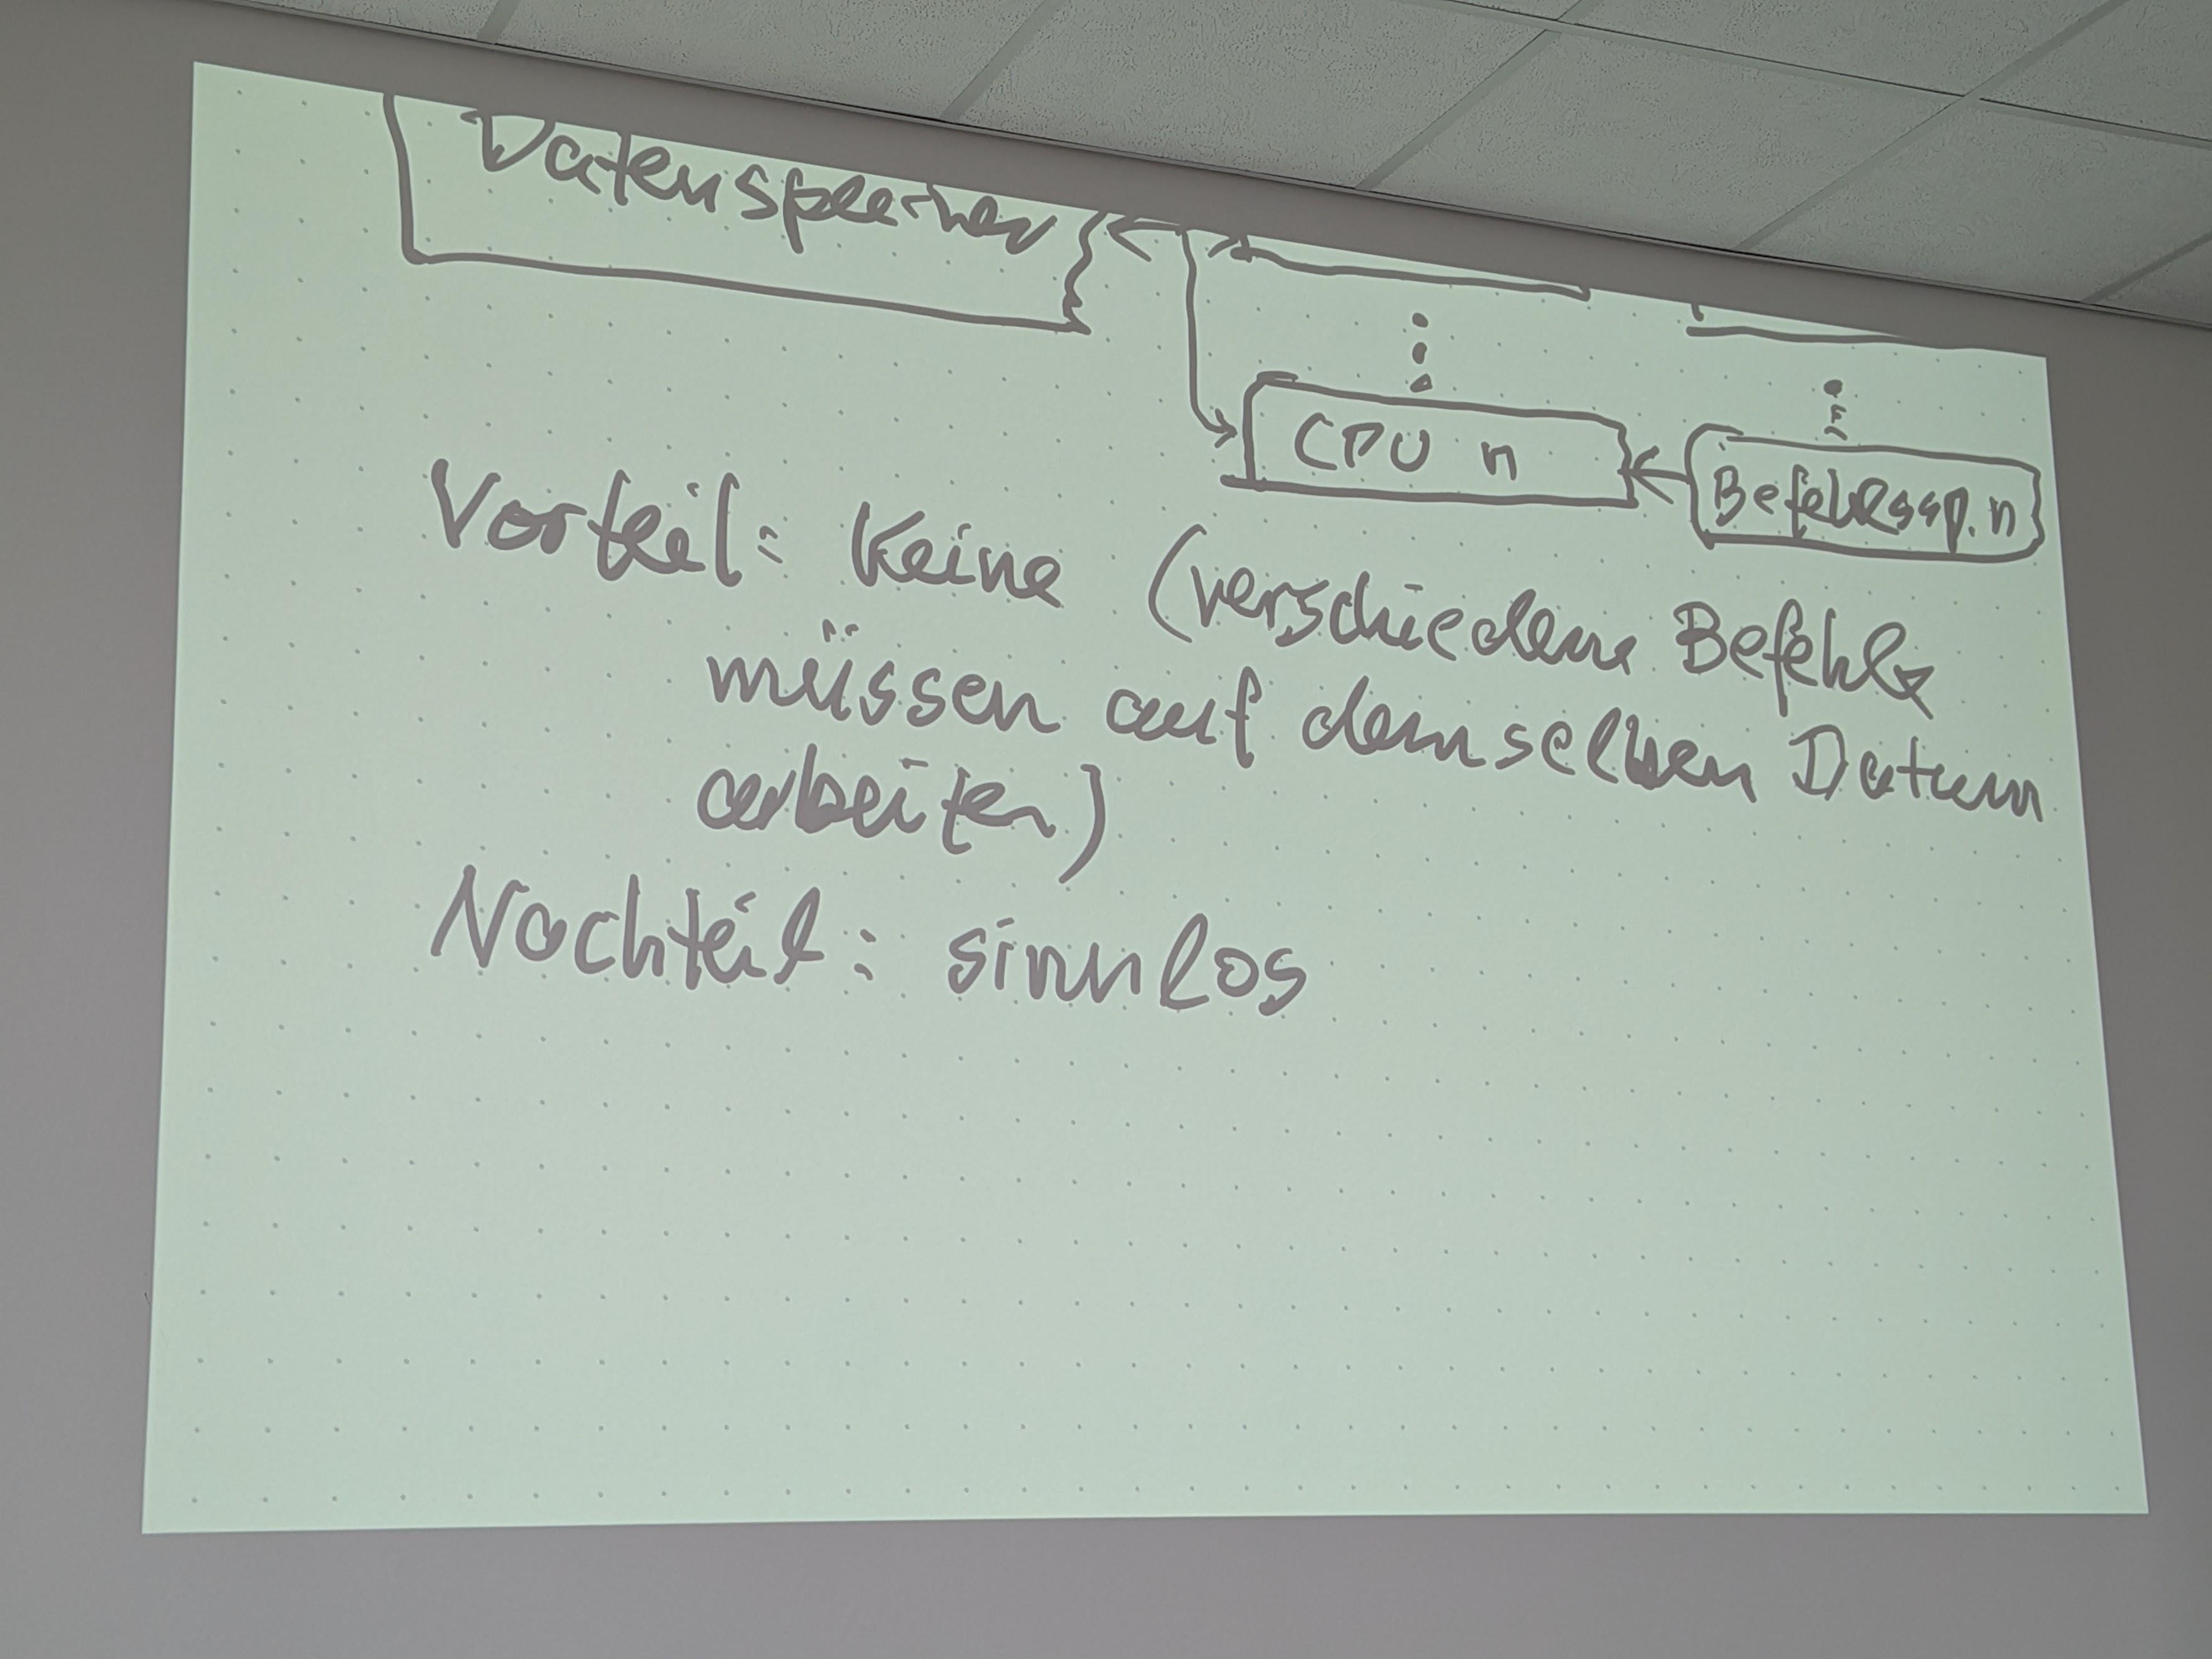 Datenspeicher
CPU n
Befehlssp. n
Vorteil: Keine (verschiedene Befehle
müssen auf demselben Datum
arbeiten)
Nachteil: sinnlos